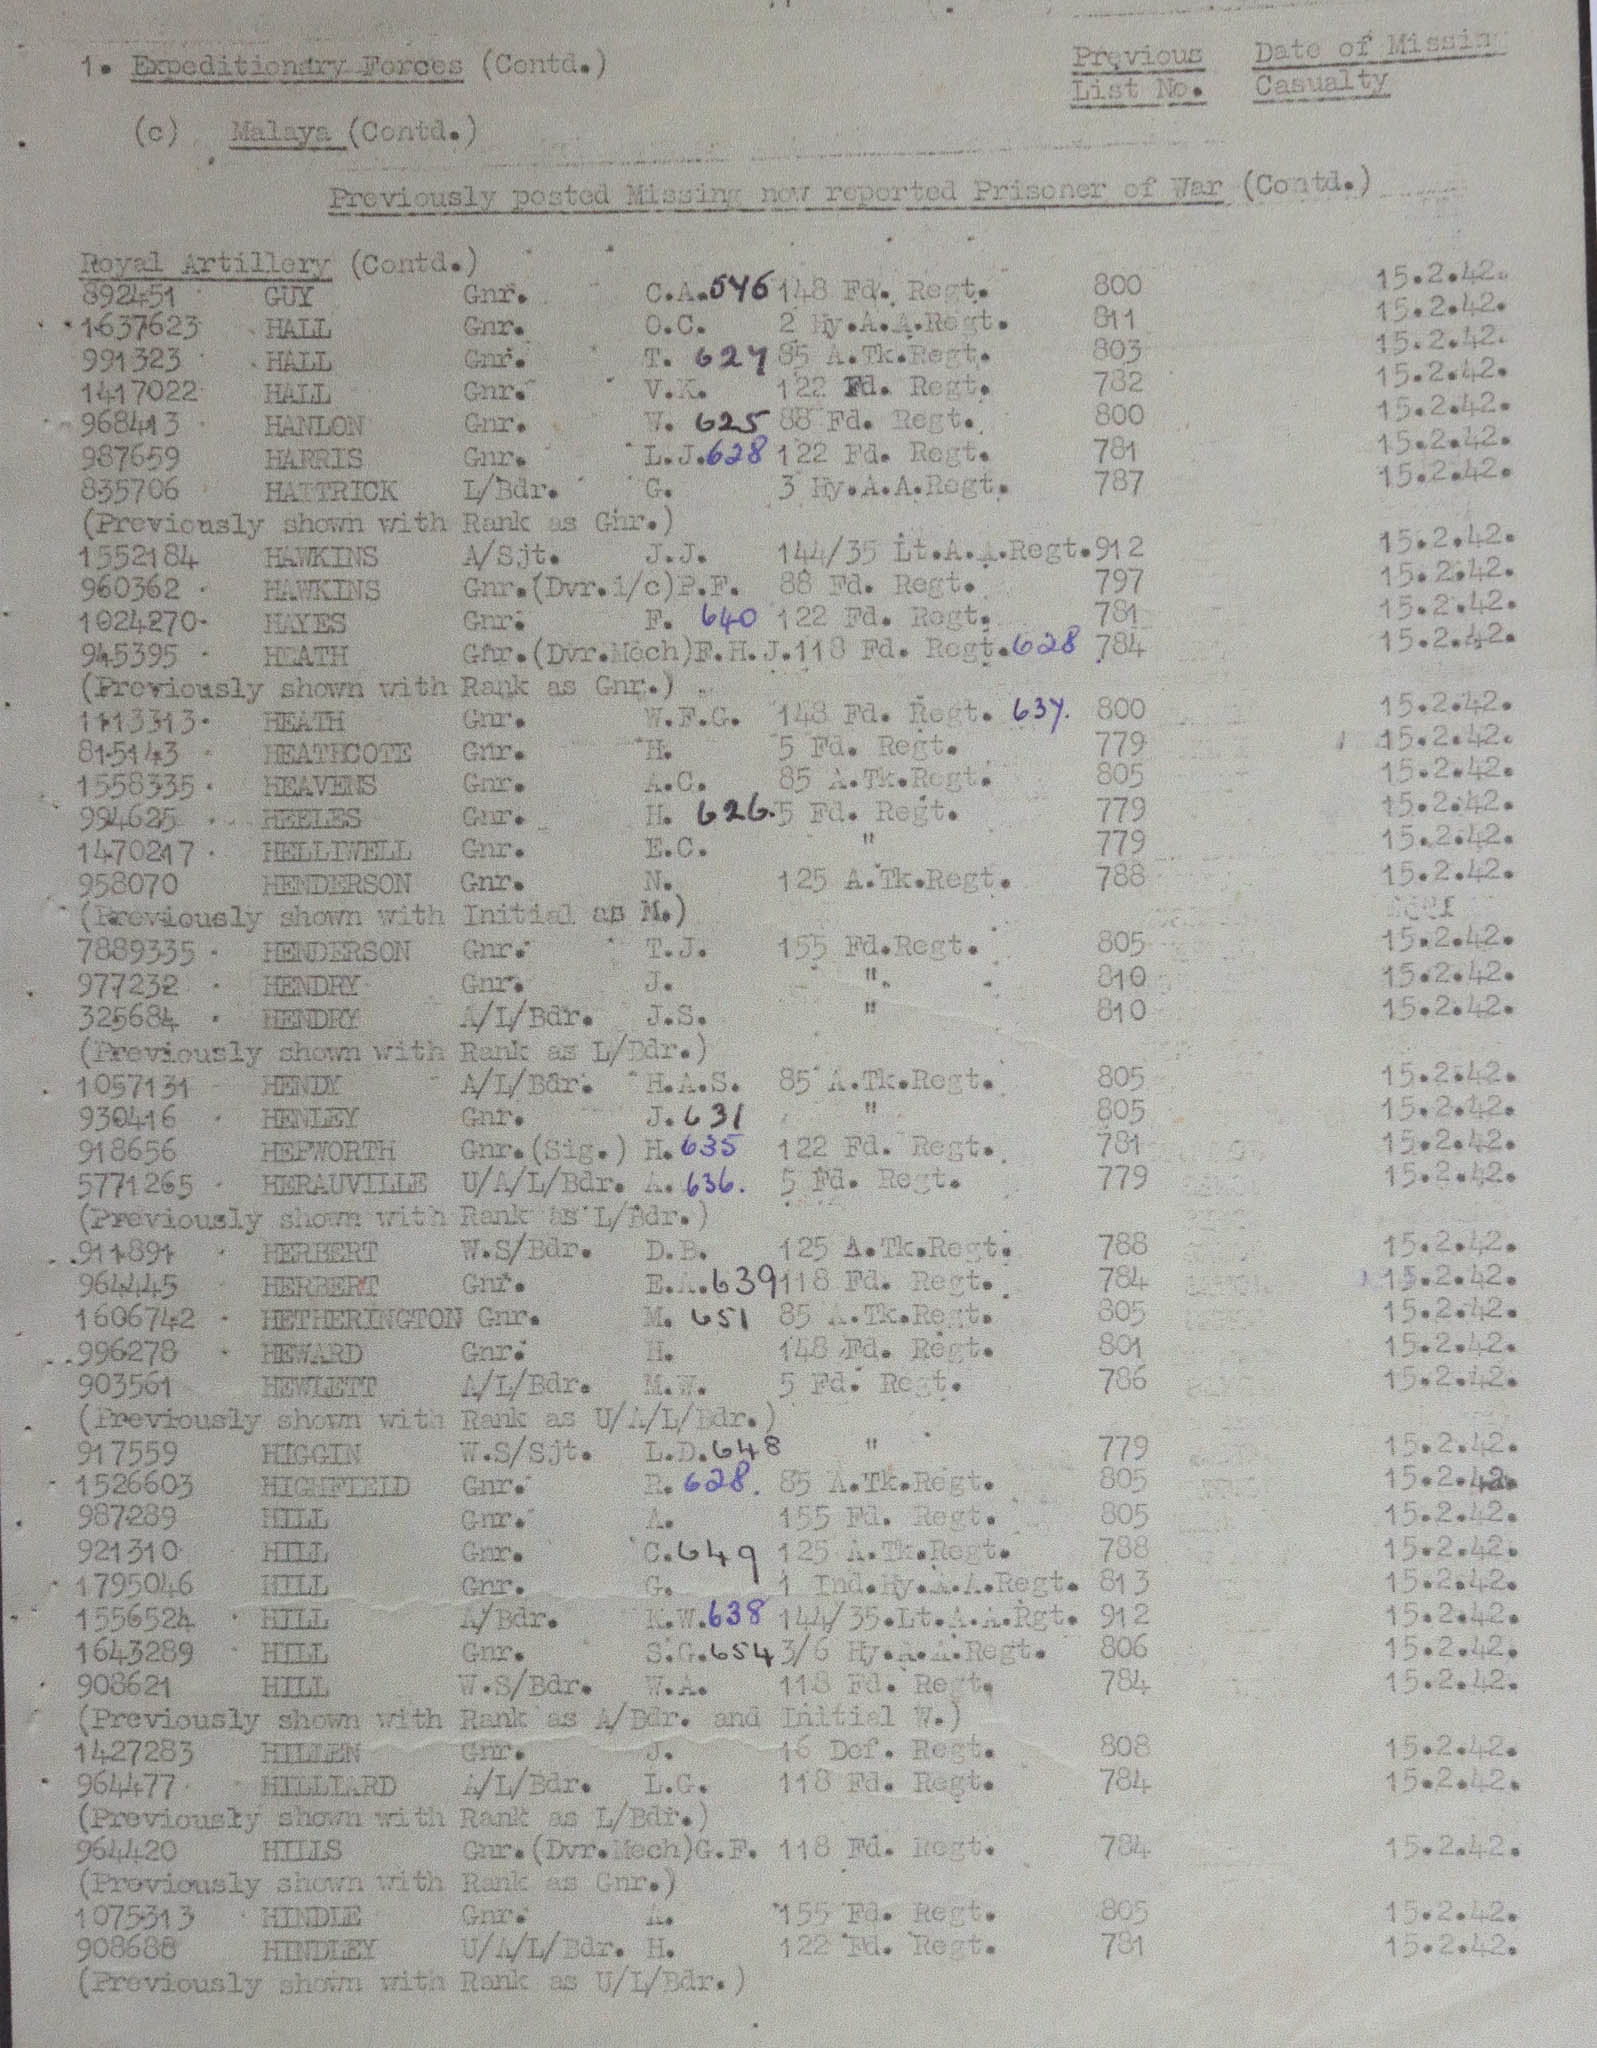 1. Expeditionary Forces (Contd.) Previous Date of Missing
List No. Casualty
(c) Malaya (Contd.)
Previously posted Missing now reported Prisoner of War (Contd.)
Royal Artillery (Contd.)
892451 GUY Gnr. C.A. 546 148 Fd. Regt. 800 15.2.42.
1637623 HALL Gnr. O.C. 2 Hy.A.A.Regt. 811 15.2.42.
991323 HALL Gnr. T. 627 85 A.Tk.Regt. 803 15.2.42.
1417022 HALL Gnr. V.K. 122 Fd. Regt. 782 15.2.42.
968413 HANLON Gnr. W. 625 88 Fd. Regt. 800 15.2.42.
987659 HARRIS Gnr. L.J. 628 122 Fd. Regt. 781 15.2.42.
835706 HATTRICK L/Bdr. G. 3 Hy.A.A.Regt. 787 15.2.42.
(Previously shown with Rank as Gnr.)
1552184 HAWKINS A/Sjt. J.J. 144/35 Lt.A.A.Regt. 912 15.2.42.
960362 HAWKINS Gnr.(Dvr.i/c) P.F. 88 Fd. Regt. 797 15.2.42.
1024270 HAYES Gnr. F. 640 122 Fd. Regt. 781 15.2.42.
945395 HEATH Gnr.(Dvr.Mech) F.H.J. 118 Fd. Regt. 628 784 15.2.42.
(Previously shown with Rank as Gnr.)
1113313 HEATH Gnr. W.F.G. 148 Fd. Regt. 637. 800 15.2.42.
815143 HEATHCOTE Gnr. H. 5 Fd. Regt. 779 15.2.42.
1558335 HEAVENS Gnr. A.C. 85 A.Tk.Regt. 805 15.2.42.
994625 HEELES Gnr. H. 626. 5 Fd. Regt. 779 15.2.42.
1470217 HELLIWELL Gnr. E.C. " 779 15.2.42.
958070 HENDERSON Gnr. N. 125 A.Tk.Regt. 788 15.2.42.
(Previously shown with Initial as M.)
7889335 HENDERSON Gnr. T.J. 155 Fd.Regt. 805 15.2.42.
977232 HENDRY Gnr. J. " 810 15.2.42.
325684 HENDRY A/L/Bdr. J.S. " 810 15.2.42.
(Previously shown with Rank as L/Bdr.)
1057131 HENDY A/L/Bdr. H.A.S. 85 A.Tk.Regt. 805 15.2.42.
930416 HENLEY Gnr. J. 631 " 805 15.2.42.
918656 HEPWORTH Gnr.(Sig.) H. 635 122 Fd. Regt. 781 15.2.42.
5771265 HERAUVILLE U/A/L/Bdr. A. 636. 5 Fd. Regt. 779 15.2.42.
(Previously shown with Rank as L/Bdr.)
911891 HERBERT W.S/Bdr. D.B. 125 A.Tk.Regt. 788 15.2.42.
964445 HERBERT Gnr. E.A. 639 118 Fd. Regt. 784 15.2.42.
1606742 HETHERINGTON Gnr. M. 651 85 A.Tk.Regt. 805 15.2.42.
996278 HEWARD Gnr. H. 148 Fd. Regt. 801 15.2.42.
903561 HEWLETT A/L/Bdr. M.W. 5 Fd. Regt. 786 15.2.42.
(Previously shown with Rank as U/A/L/Bdr.)
917559 HIGGIN W.S/Sjt. L.D. 648 " 779 15.2.42.
1526603 HIGHFIELD Gnr. R. 628. 85 A.Tk.Regt. 805 15.2.42.
987289 HILL Gnr. A. 155 Fd. Regt. 805 15.2.42.
921310 HILL Gnr. C. 649 125 A.Tk.Regt. 788 15.2.42.
1795046 HILL Gnr. G. 1 Ind.Hy.A.A.Regt. 813 15.2.42.
1556524 HILL A/Bdr. K.W. 638 144/35.Lt.A.A.Rgt. 912 15.2.42.
1643289 HILL Gnr. S.G. 654 3/6 Hy.A.A.Regt. 806 15.2.42.
908621 HILL W.S/Bdr. W.A. 118 Fd. Regt. 784 15.2.42.
(Previously shown with Rank as A/Bdr. and Initial W.)
1427283 HILLEN Gnr. J. 16 Def. Regt. 808 15.2.42.
964477 HILLIARD A/L/Bdr. L.G. 118 Fd. Regt. 784 15.2.42.
(Previously shown with Rank as L/Bdr.)
964420 HILLS Gnr.(Dvr.Mech) G.F. 118 Fd. Regt. 784 15.2.42.
(Previously shown with Rank as Gnr.)
1075313 HINDLE Gnr. A. 155 Fd. Regt. 805 15.2.42.
908688 HINDLEY U/A/L/Bdr. H. 122 Fd. Regt. 781 15.2.42.
(Previously shown with Rank as U/L/Bdr.)